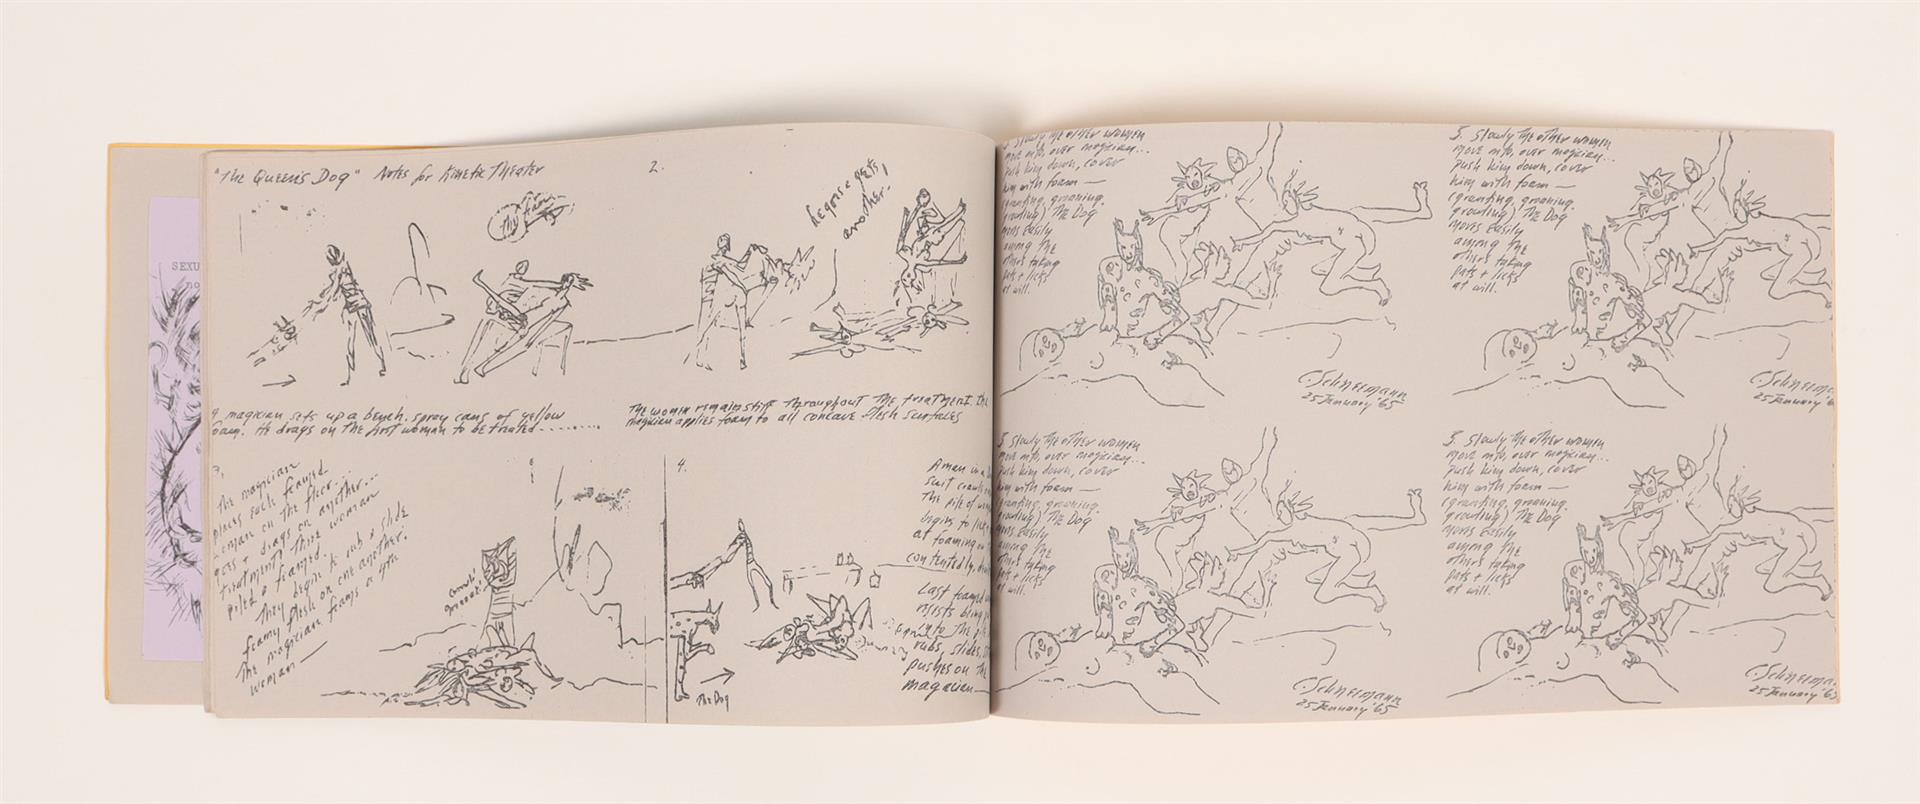 SEXU
no
"The Queen's Dog" Notes for Kinetic Theater
2.
the foam
he goes & gets
another.
A magician sets up a bench, spray cans of yellow
foam. He drags on the first woman to be treated.........
The women remain stiff throughout the treatment. the
magician applies foam to all concave flesh surfaces
3.
the magician
places each foamed
woman on the floor
goes & drags on another...
treatment. three women
piled & foamed.
They begin to rub & slide
foamy flesh on one another.
the magician foams a 4th
woman —
4.
A man in a
suit crawls
the pile of
begins to lick
at foaming
contentedly,
Last foamed
resists
into the
rubs, slides,
pushes on the
magician —
The Dog
5. Slowly the other women
move into, over magician...
push him down, cover
him with foam —
(grunting, groaning.
growling) The Dog
moves easily
among the
others taking
pats + licks
at will.
C. Schneemann
25 January '65
5. Slowly the other women
move into, over magician...
push him down, cover
him with foam —
(grunting, groaning.
growling) The Dog
moves easily
among the
others taking
pats + licks
at will.
C. Schneeman
25 January '6
5. Slowly the other women
move into, over magician...
push him down, cover
him with foam —
(grunting, groaning.
growling) The Dog
moves easily
among the
others taking
pats + licks
at will.
C. Schneemann
25 January '65
5. Slowly the other women
move into, over magician...
push him down, cover
him with foam —
(grunting, groaning.
growling) The Dog
moves easily
among the
others taking
pats + licks
at will.
C. Schneema
25 January '65